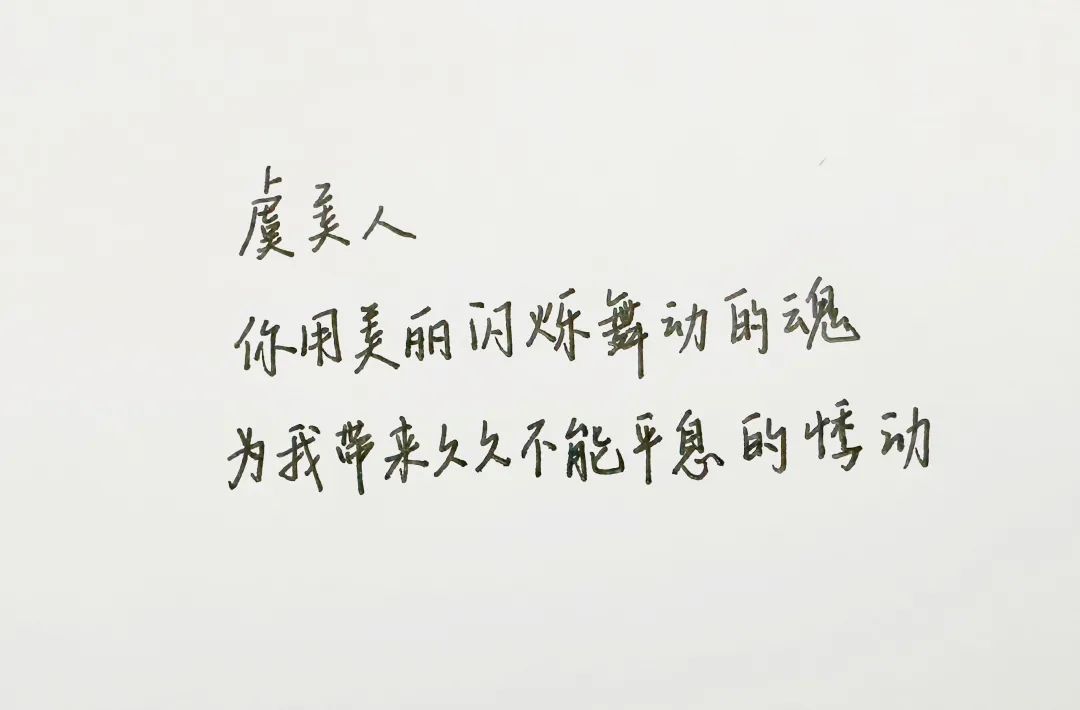 虞美人
你用美丽闪烁舞动的魂
为我带来久久不能平息的悸动